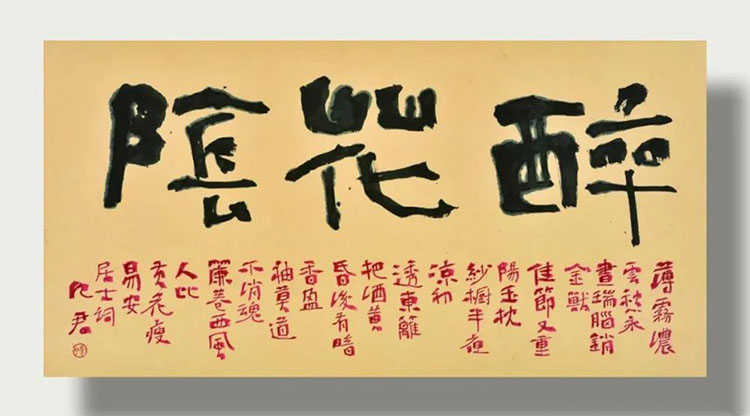 醉花陰
薄霧濃
雲愁永
晝瑞腦銷
金獸
佳節又重
陽玉枕
紗櫥半夜
涼初
透東籬
把酒黃
昏後有暗
香盈
袖莫道
不消魂
簾卷西風
人比
黃花瘦
易安
居士詞
君